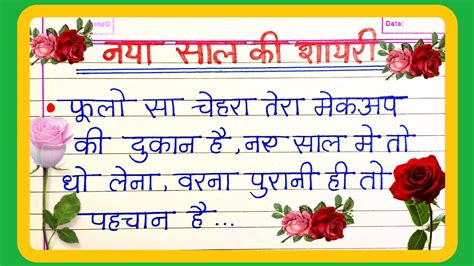 Date:
नया साल की शायरी
• फूलो सा चेहरा तेरा मेकअप
की दुकान है, नए साल मे तो
धो लेना, वरना पुरानी ही तो
पहचान है...